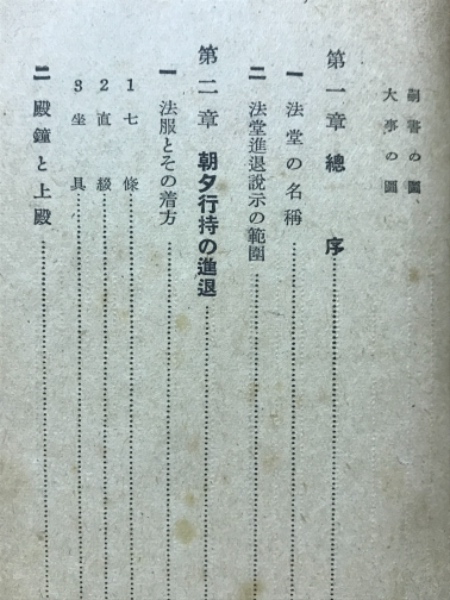 嗣書の圖、
大事の圖
第一章 總序
一 法堂の名稱
二 法堂進退說示の範圍
第二章 朝夕行持の進退
一 法服とその着方
1 七條
2 直綴
3 坐具
二 殿鐘と上殿